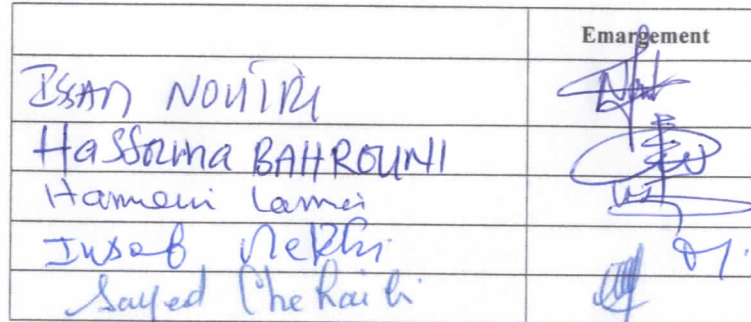 Emargement
ISSAM NOUIRI
Hassouna BAHROUNI
Hamouni Lamei
Insaf Mekki
Sayed Chekaibi